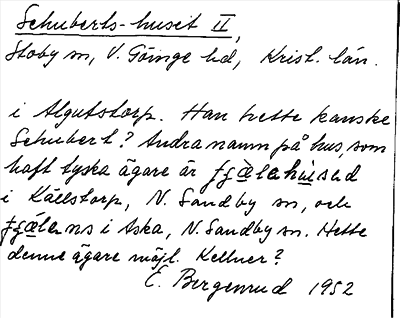 Schuberts-huset II,
Stoby sn, V. Göinge hd, Krist. län.
i Algutstorp. Han hette kanske
Schubert? Andra namn på hus, som
haft tyska ägare är
i Källstorp, N. Sandby sn, och
i Aska, N. Sandby sn. Hette
denne ägare möjl. Kellner?
E. Bergenrud 1952